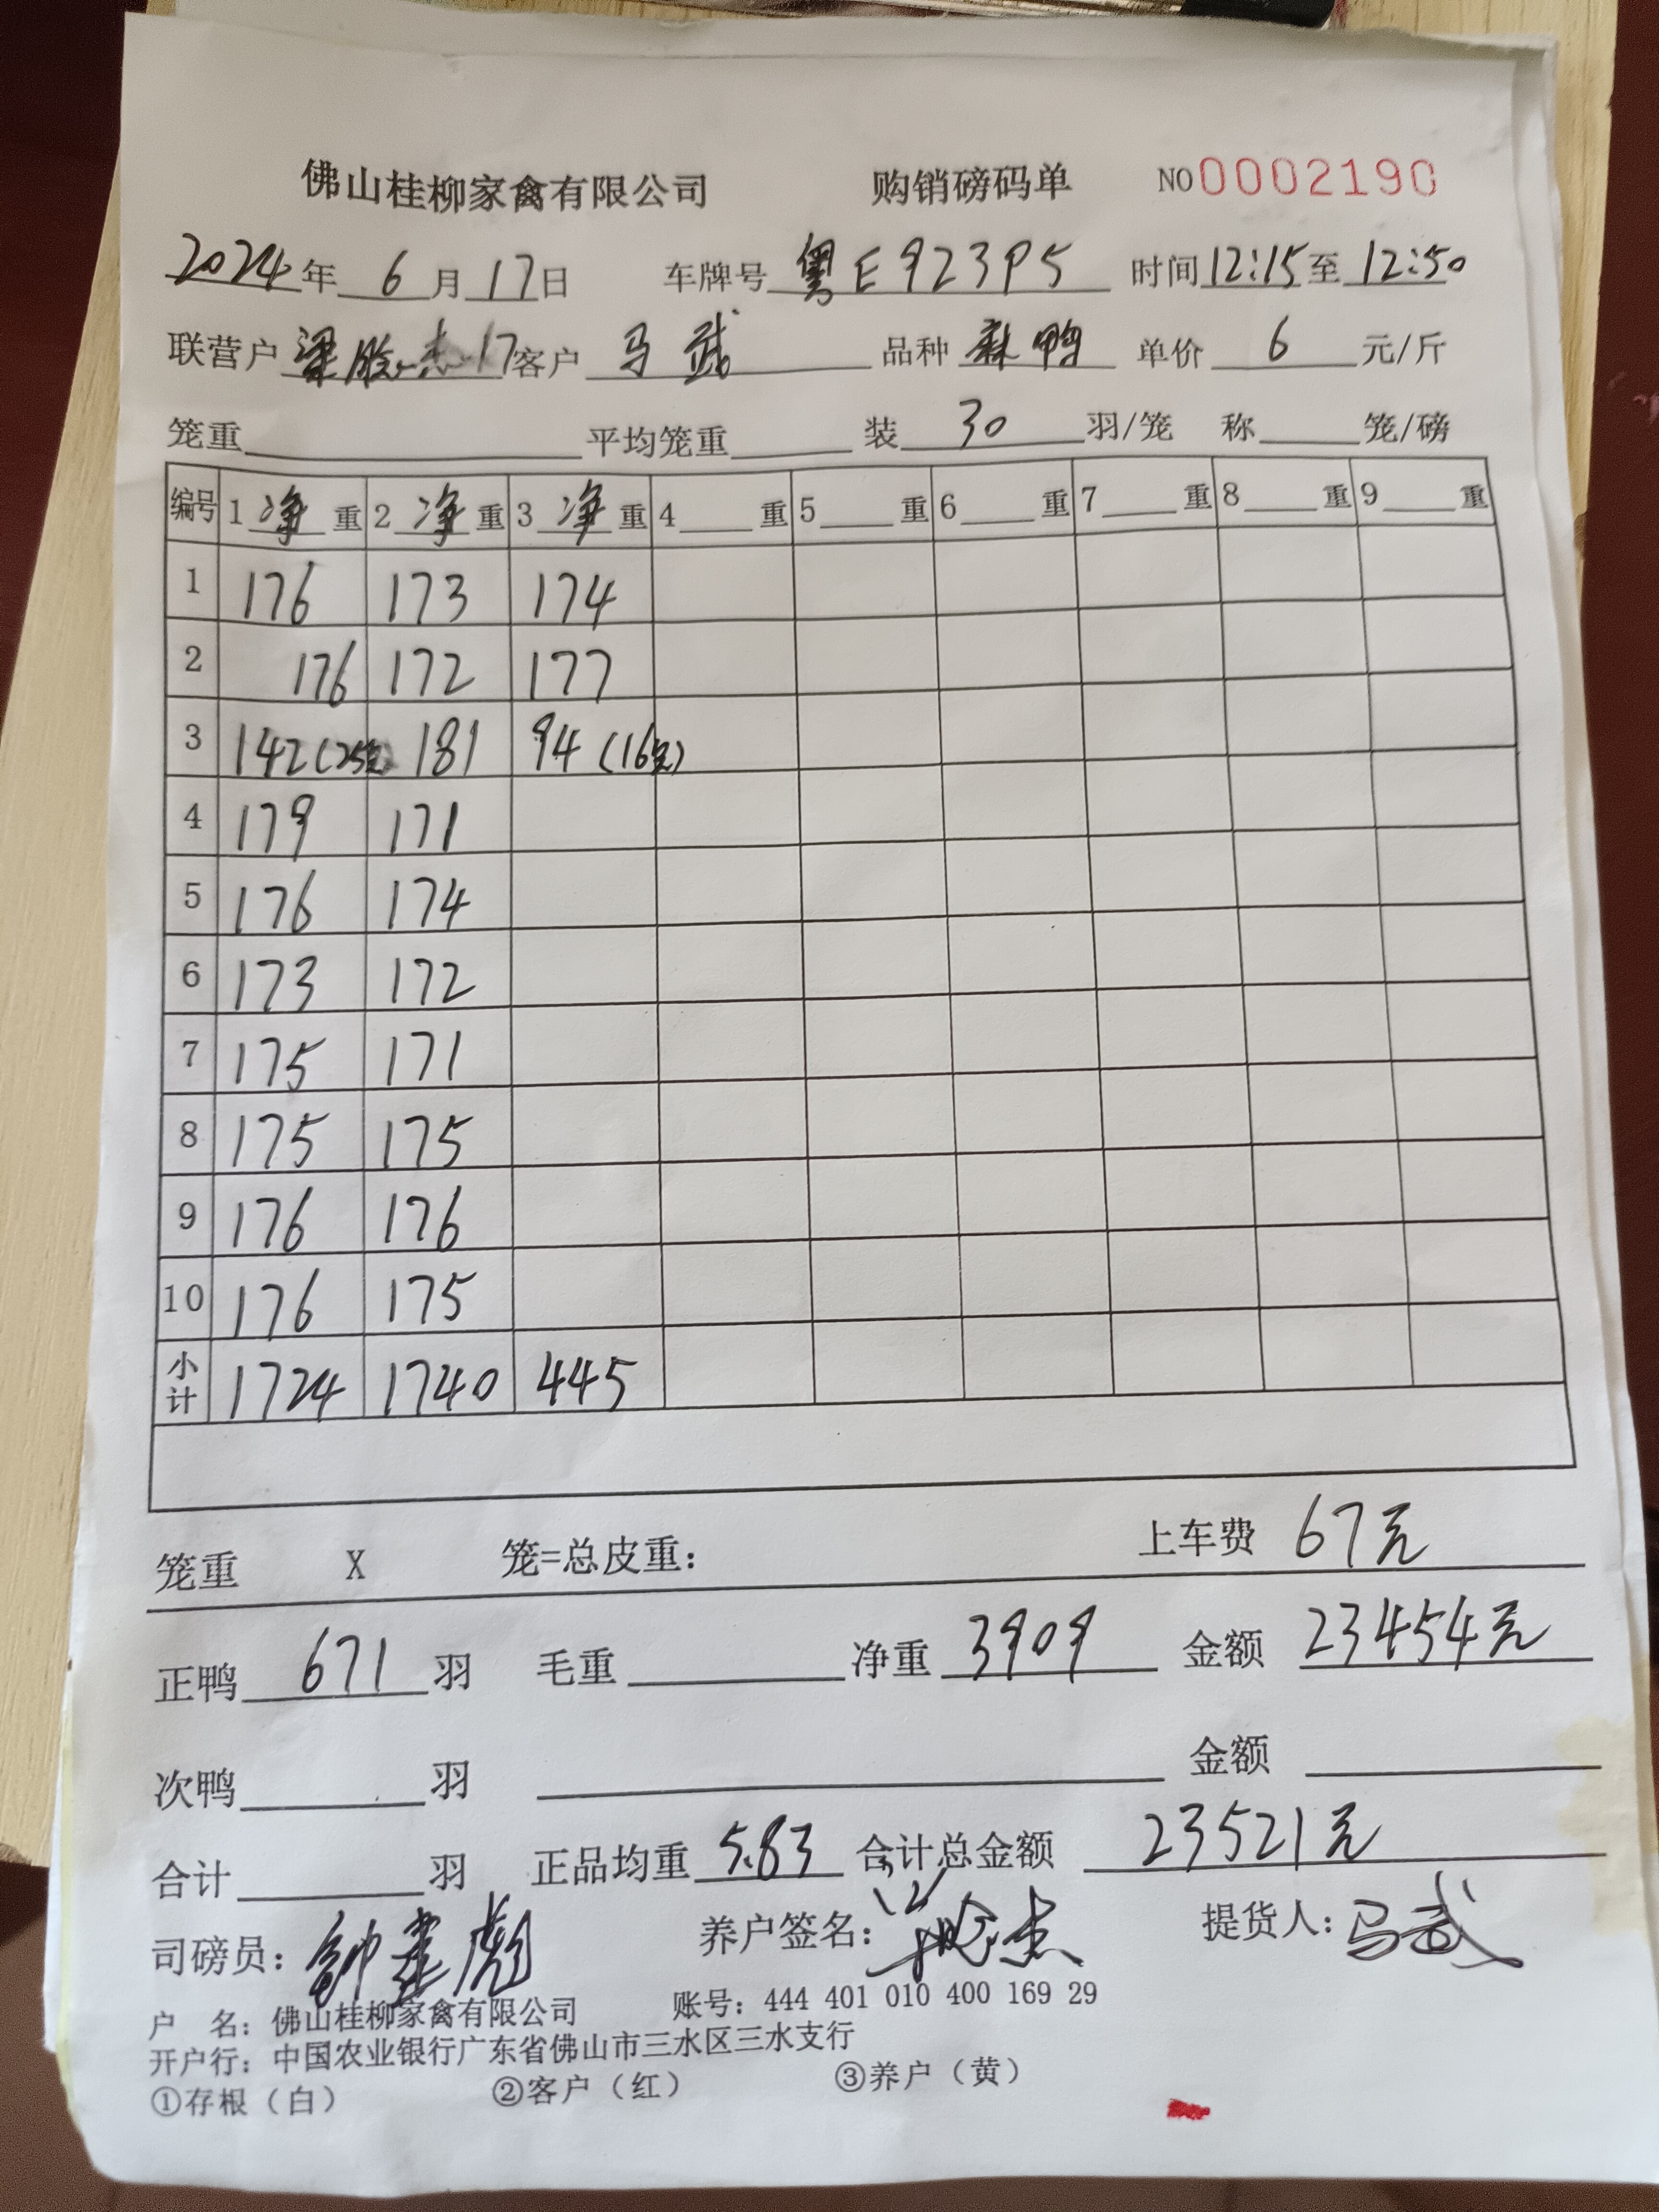 佛山桂柳家禽有限公司 购销磅码单 NO 0002190
2024年 6月 17日 车牌号 粤E923P5 时间 12:15 至 12:50
联营户 梁 杰 17 客户 马武 品种 麻鸭 单价 6 元/斤
笼重 平均笼重 装 30 羽/笼 称 笼/磅
编号 1 净 重 2 净 重 3 净 重 4 重 5 重 6 重 7 重 8 重 9 重
1 176 173 174
2 176 172 177
3 142(25只) 181 94(16只)
4 179 171
5 176 174
6 173 172
7 175 171
8 175 175
9 176 176
10 176 175
小计 1724 1740 445
笼重 X 笼=总皮重: 上车费 67元
正鸭 671 羽 毛重 净重 3909 金额 23454元
次鸭 羽 金额
合计 羽 正品均重 5.83 合计总金额 23521元
司磅员: 养户签名: 提货人: 马武
户 名: 佛山桂柳家禽有限公司 账号: 444 401 010 400 169 29
开户行: 中国农业银行广东省佛山市三水区三水支行
①存根（白） ②客户（红） ③养户（黄）